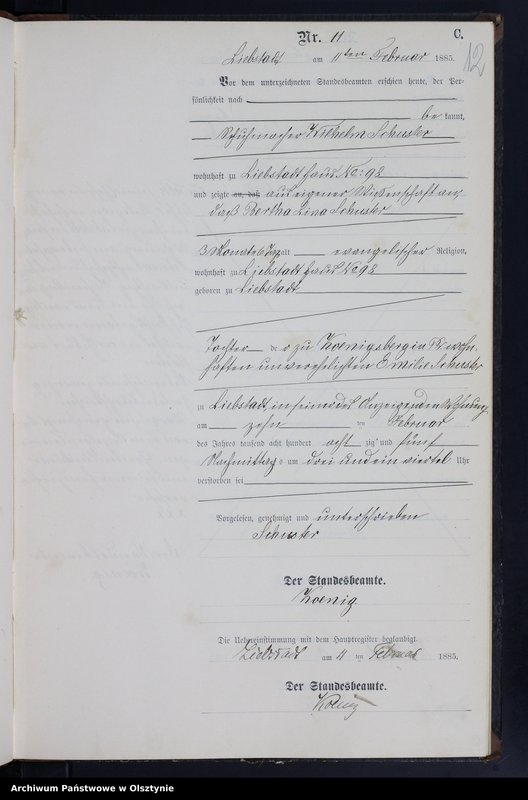 Nr. 11
C.
12
Liebstadt am 11ten Februar 1885.
Vor dem unterzeichneten Standesbeamten erschien heute, der Per-
sönlichkeit nach
be kannt,
Schuhmacher Wilhelm Schuster
wohnhaft zu Liebstadt Haus No: 92
und zeigte an, daß aus eigener Wissenschaft an,
daß Bertha Lina Schuster
3 Monate 6 Tag alt evangelischer Religion,
wohnhaft zu Liebstadt Haus No 92
geboren zu Liebstadt
Tochter de r zu Koenigsberg in Pr. wohn-
haften unverehelichten Emilie Schuster
zu Liebstadt, in seine des Anzeigenden Wohnung
am zehn ten Februar
des Jahres tausend acht hundert acht zig und fünf
Nachmittags um drei und ein viertel Uhr
verstorben sei
Vorgelesen, genehmigt und unterschrieben
Schuster
Der Standesbeamte.
Koenig
Die Uebereinstimmung mit dem Hauptregister beglaubigt
Liebstadt am 11 ten Februar 1885.
Der Standesbeamte.
Koenig
Archiwum Państwowe w Olsztynie